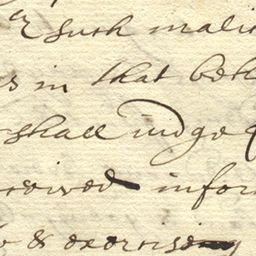 such mali
s in that beh
shall iudge
reived infor
& exercise